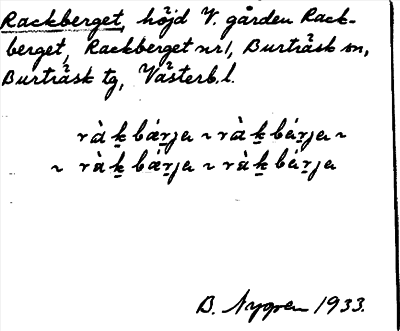 Rackberget, höjd V. gården Rack-
berget, Rackberget nr 1, Burträsk sn,
Burträsk tg, Västerb. l.
ràk̠ bár̠ja ~ ràk̠ bár̠ja ~
~ ràk̠ bár̠ja ~ ràk̠ bár̠ja
B. Nygren 1933.